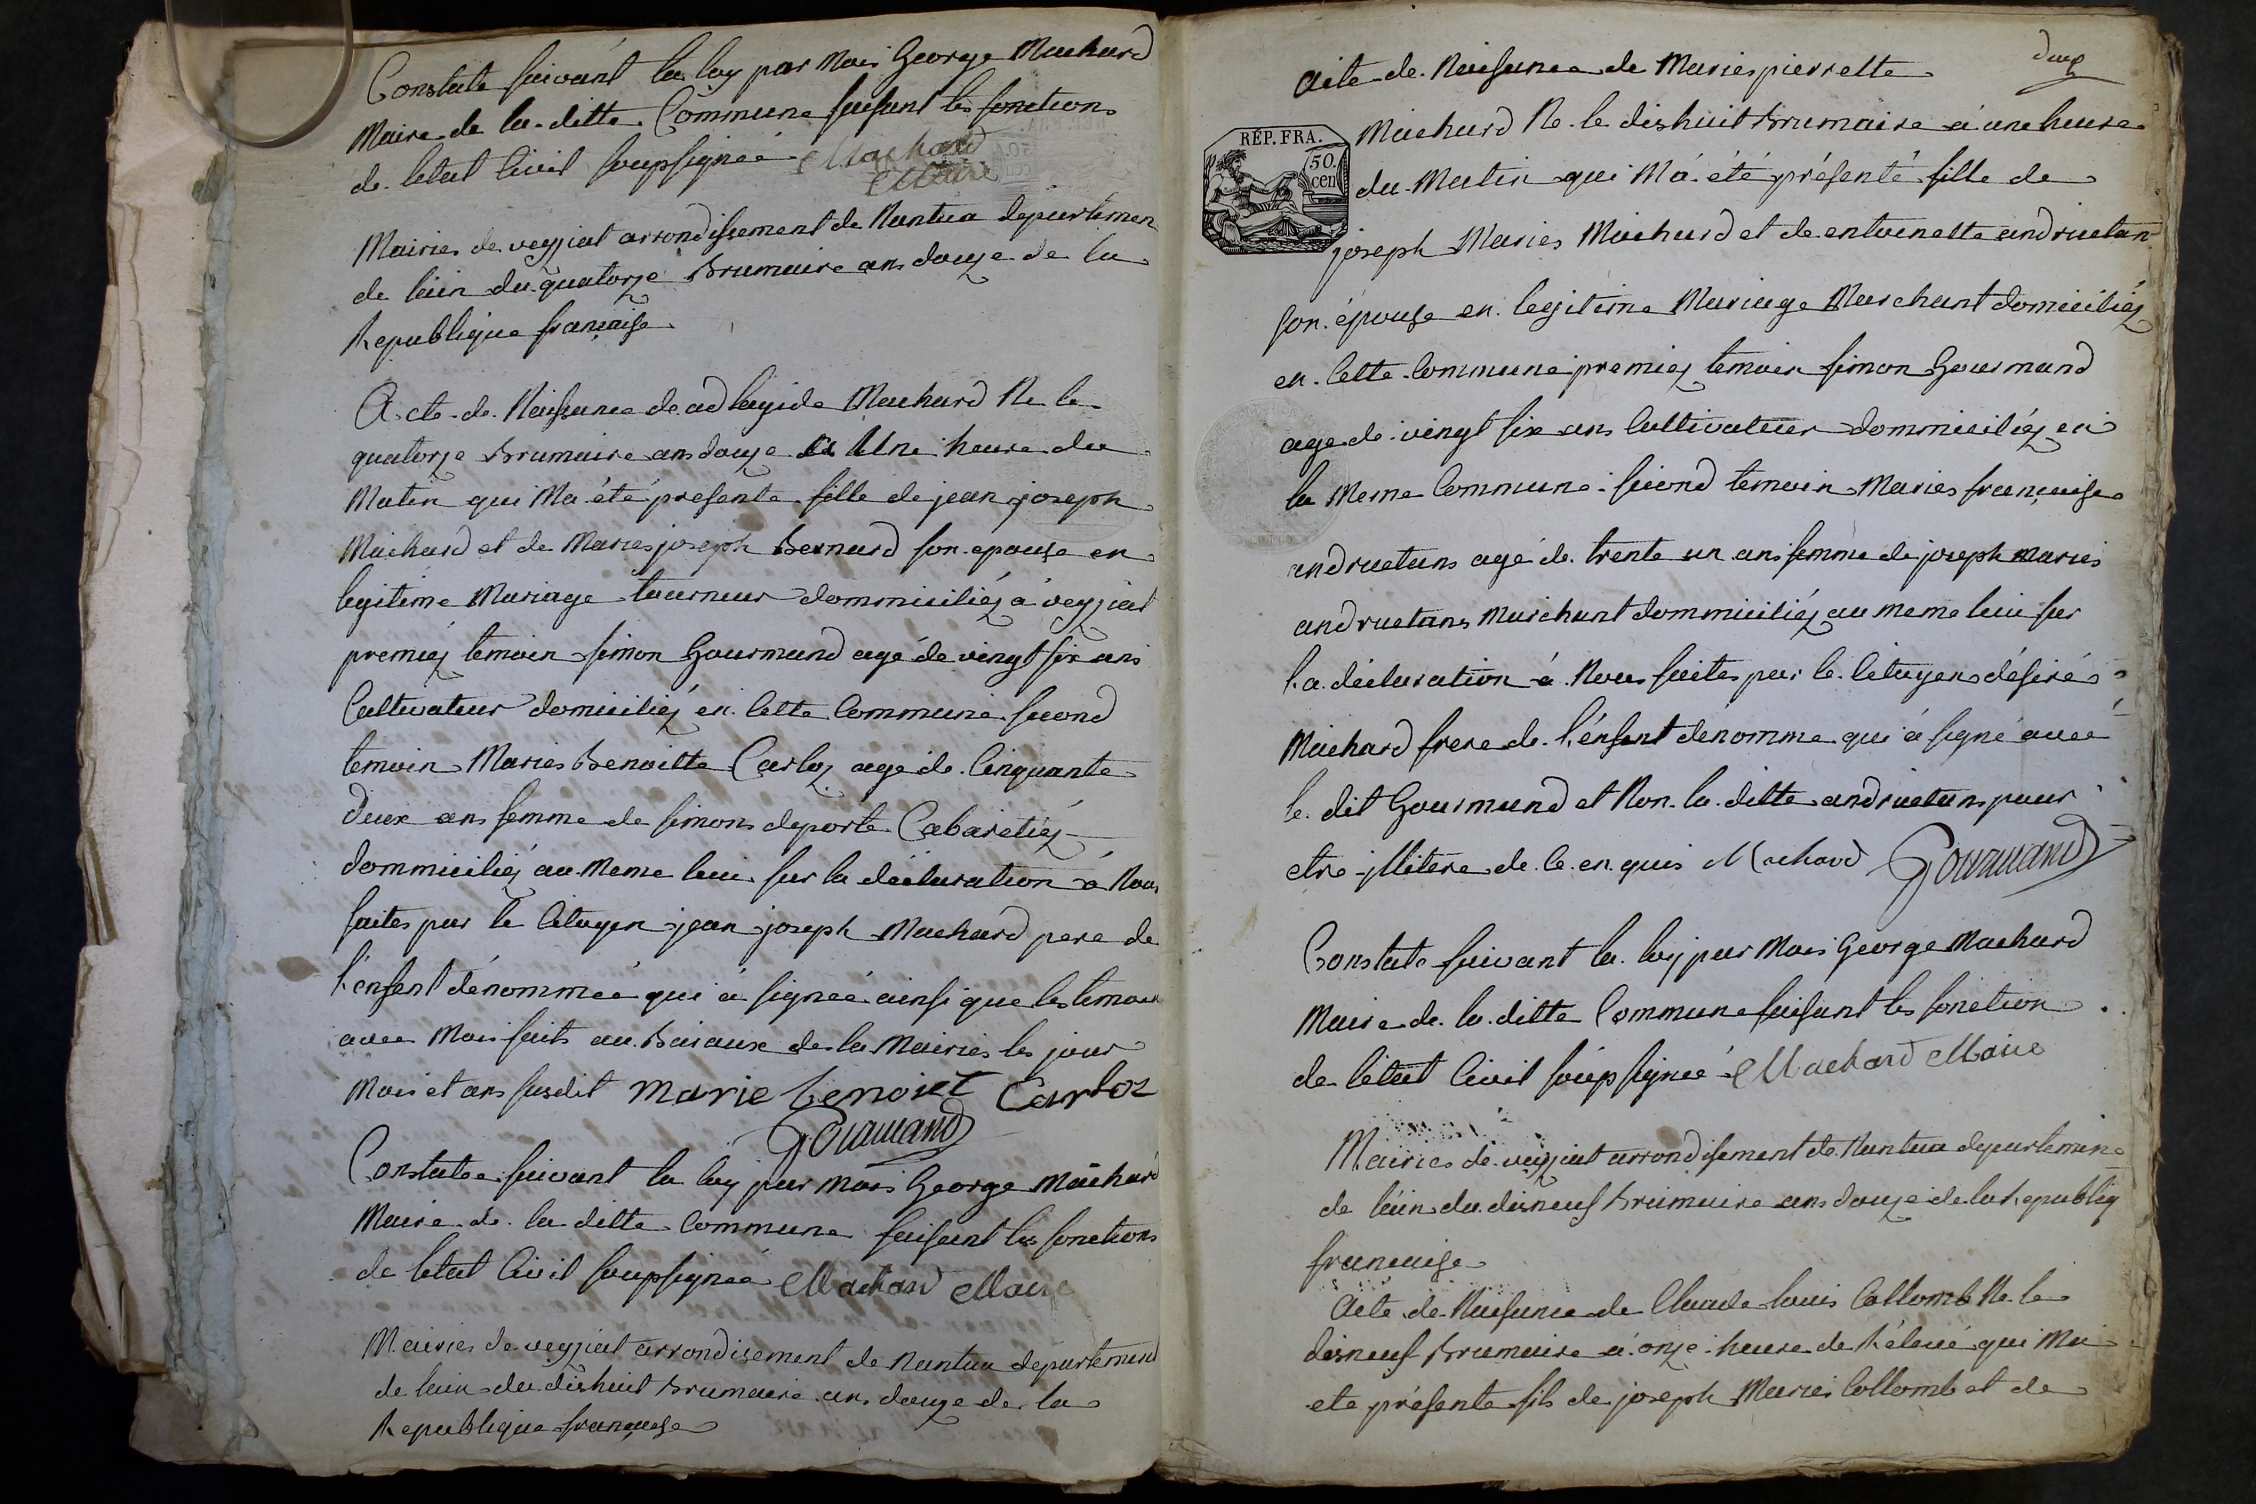 Constate suivant la loy par Mois George Machard
Maire de la ditte Commune faisant les fonctions
de letat Civil soupsignée Machard
Maire
Mairies de veyziat arrondissement de Nantua departemen
de lain du quatorze Brumaire ans douze de la
Republique française
Acte de Naissance de adlayide Machard Ne le
quatorze Brumaire ans douze a Une heure du
Matin qui Ma été présenté fille de jean joseph
Machard et de Maries joseph Bernard son epouse en
legitime Mariage tourneur dommiciliéz a veyziat
premiez temoin simon Gourmand agé de vingt six ans
Cultivateur domiciliéz en Cette Commune second
temoin Maries Benoitte Carloz agé de Cinquante
deux ans femme de simons deporte Cabaretiéz
dommiciliéz au Meme lieu sur la déclaration à Nous
faites par le Citoyen jean joseph Machard pere de
l'enfent dénommée qui à signée ainsi que les temoin
avec Mois faits au Buraux de la Mairies les jour
Mois et ans susdit Marie benoiet Carloz
Gouramand
Constatee suivant la loy par Mois George Machard
Maire de la ditte Commune faisant les fonctions
de letat Civil soupsignée Machard Maire
Mairies de veyziat arrondisement de Nantua departement
de lain du dishuit Brumaire ans douze de la
Republique française
douz
Acte de Naissance de Maries pierrette
RÉP. FRA.
50.
cen
Machard Ne le dishuit Brumaire a une heure
du Matin qui Má été présenté fille de
joseph Maries Machard et de entoinette andruetan
son épouse en legitime Mariage Marchant domiciliéz
en Cette Commune premiez temoin simon Gourmand
age de vingt six ans Cultivateur dommiciliéz en
la Meme Commune second temoin Maries françaises
andruetans agé de trente un ans femme de joseph maries
andruetans Marchant dommiciliéz au meme lieu sur
la déclaration à Nous faites par le Citoyens désirés
Machard frere de l'énfent dénomme qui à signé avec
le dit Gourmand et Non la ditte andruetans pour
etre jllitere de ce en quis Machard Gouramand
Constate suivant la loy par Mois George Machard
Maire de la ditte Commune faisant les fonction
de létat Civil soupsignée Machard Maire
Mairies de veyziat arrondisement de Nantua departemene
de lain du disneuf Brumaire ans douze de la Republiq
francaise
Acte de Naissance de Claude louis Collomb Ne le
disneuf Brumaire a onze heure de Rélevé qui Ma
ete présente fils de joseph Maries Collomb et de